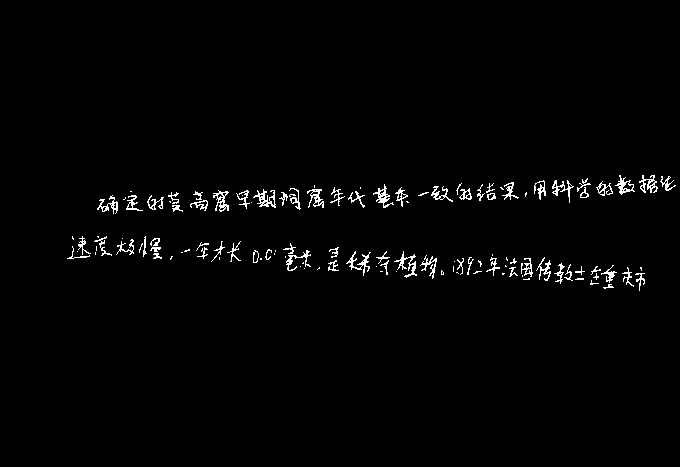 确定的莫高窟早期洞窟年代基本一致的结果，用科学的数据论
速度极慢，一年才长0.01毫米，是稀有植物。1892年法国传教士在重庆市